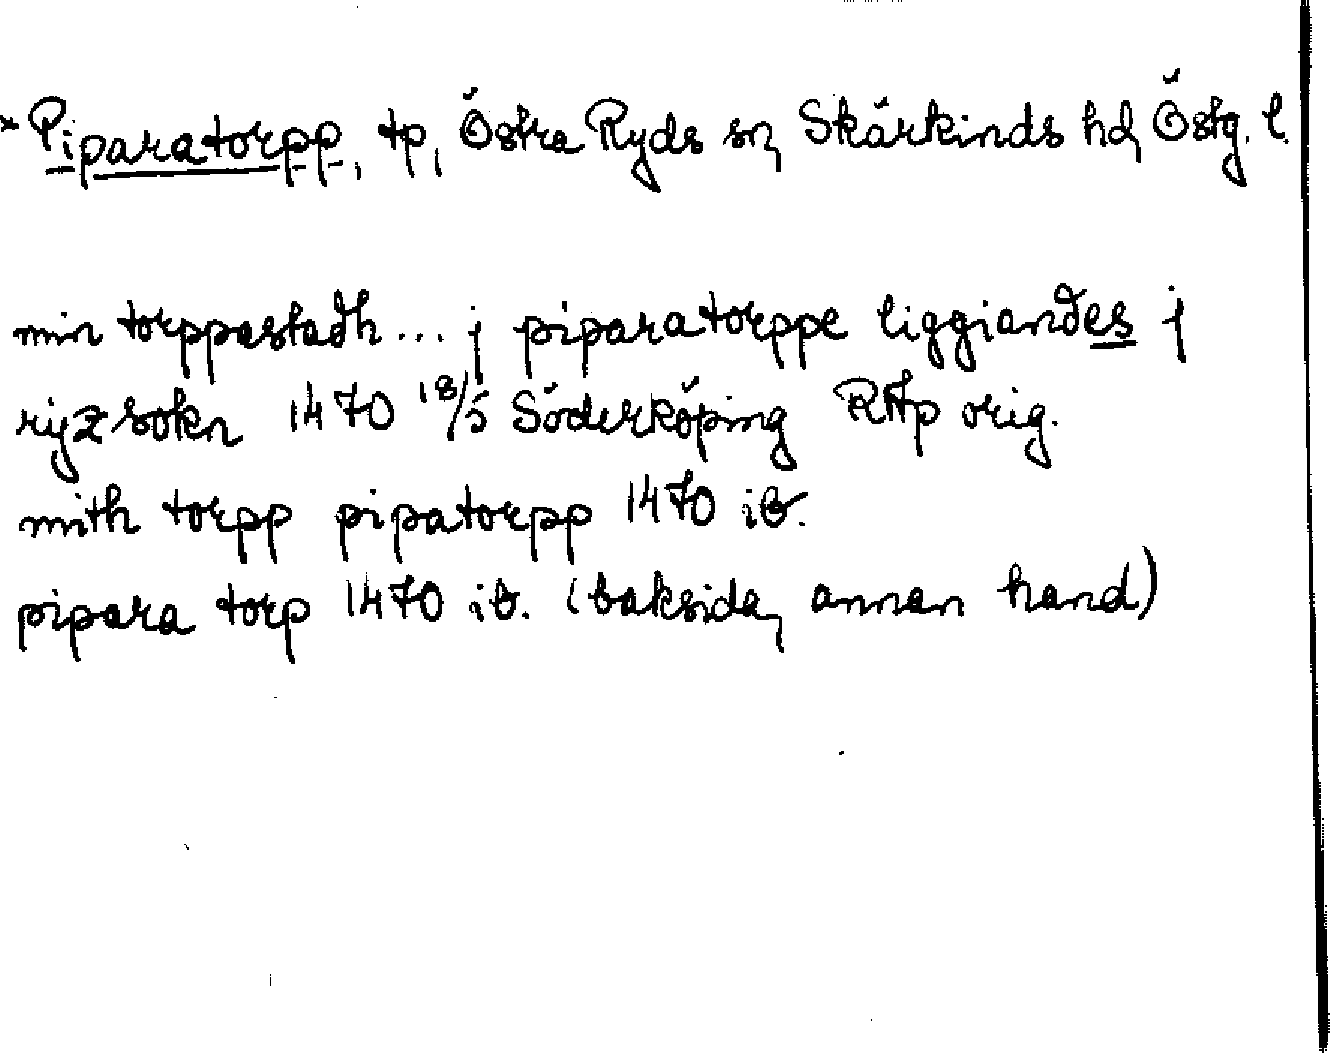 * Piparatorpp, tp, Östra Ryds sn, Skärkinds hd, Östg. l.
min torppastadh... j piparatorppe liggiandes j
ryz sokn 1470 18/5 Söderköping RAp orig.
mith torpp pipatorpp 1470 ib.
pipara torp 1470 ib. (baksida, annan hand)